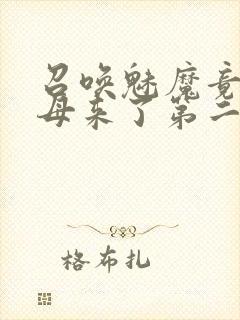 召唤魅魔竟
母来了第二
格布扎